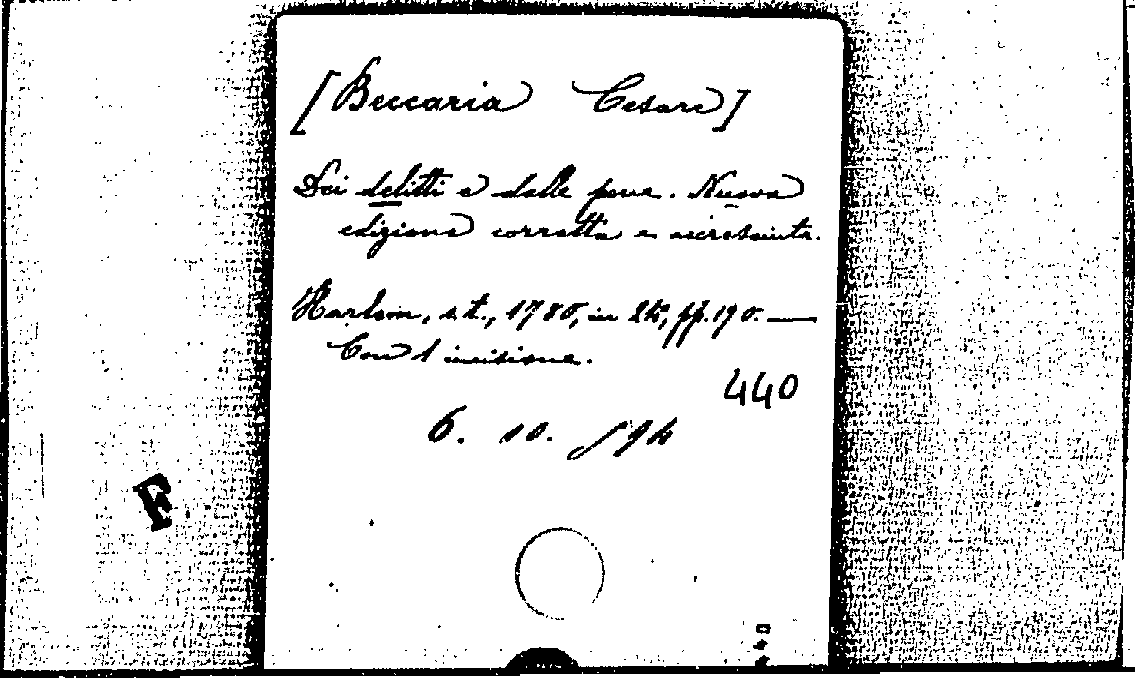 [Beccaria Cesare]
Dei delitti e delle pene. Nuova
edizione corretta e accresciuta.
Harlem, s.t., 1780, in 24º, pp. 190. —
Con 1 incisione.
440
6. 10.
F
440